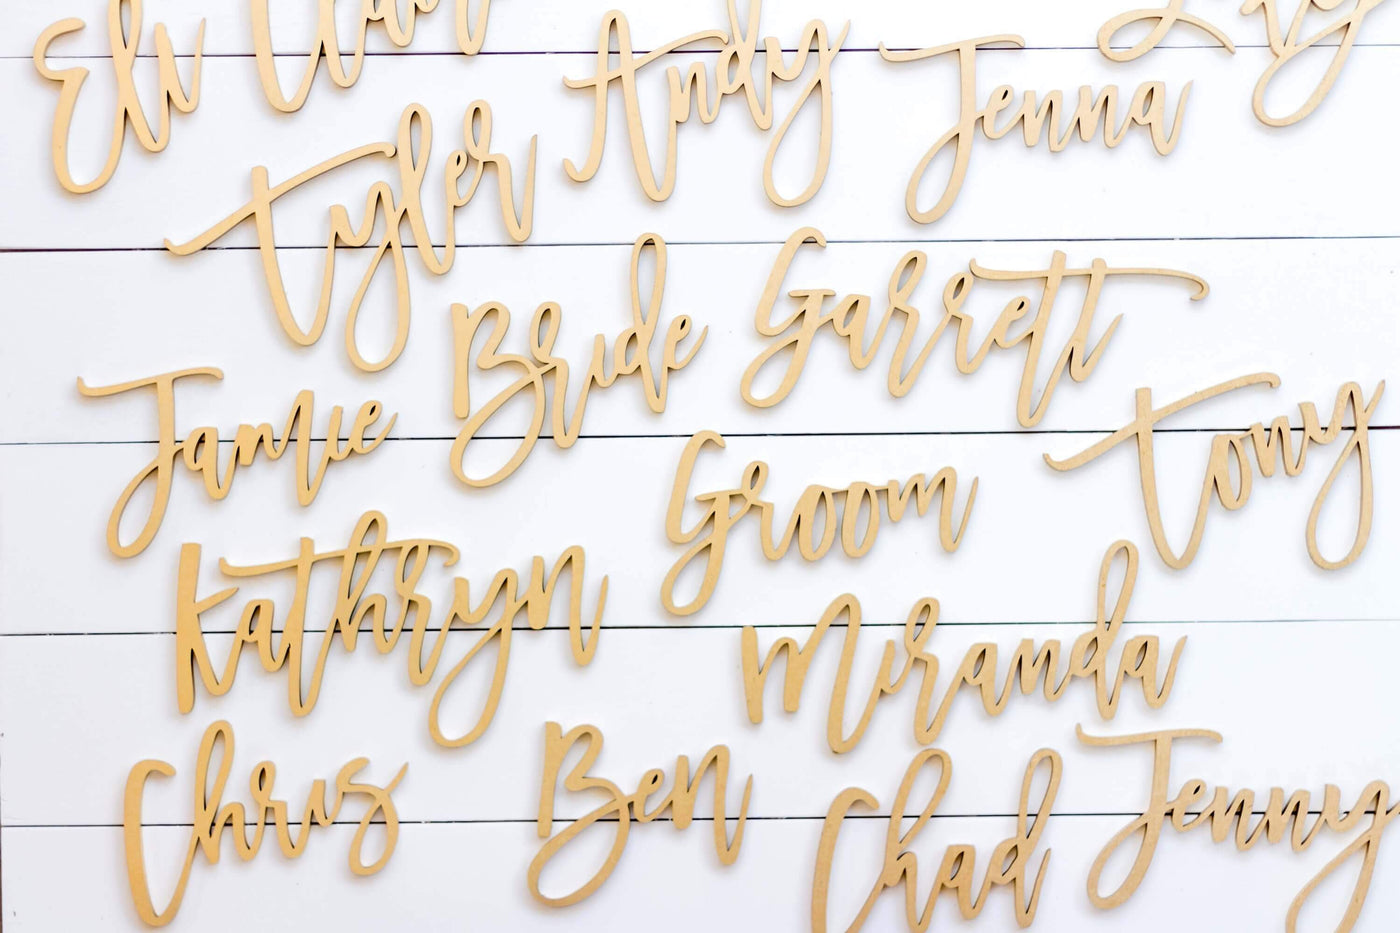 Eli
Andy
Jenna
Tyler
Bride
Garrett
Jamie
Groom
Tony
Kathryn
Miranda
Chris
Ben
Chad
Jenny